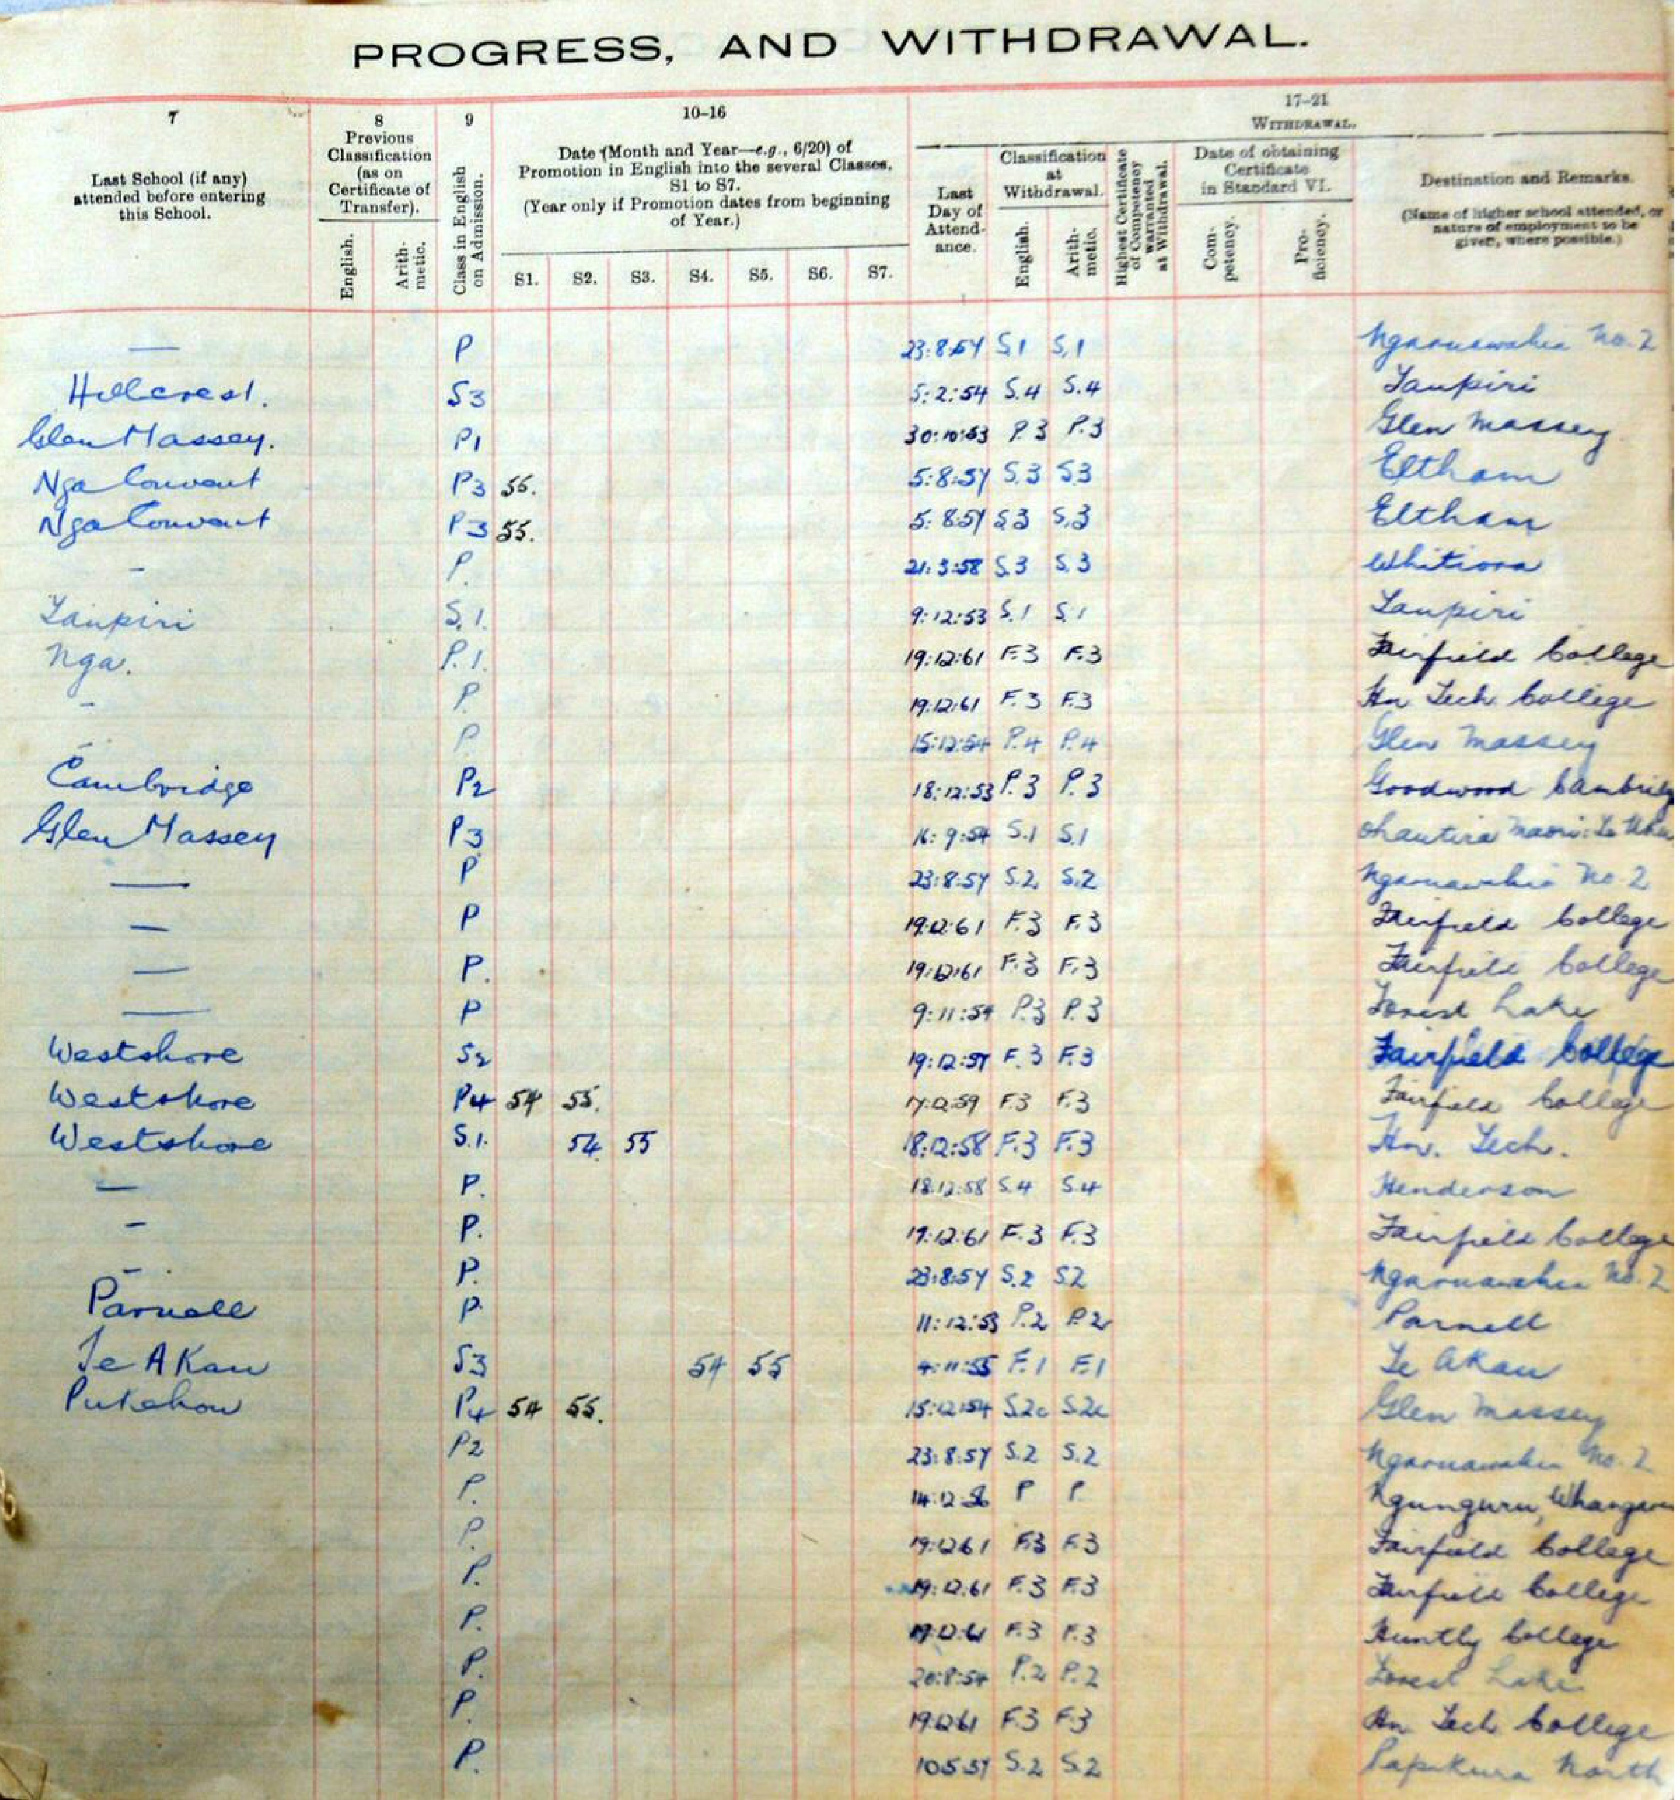 PROGRESS, AND WITHDRAWAL.
7 8 9 10-16 17-21
WITHDRAWAL.
Last School (if any) attended before entering this School.
Previous Classification (as on Certificate of Transfer).
English. Arithmetic.
Class in English on Admission.
Date (Month and Year—e.g., 6/20) of Promotion in English into the several Classes, S1 to S7.
(Year only if Promotion dates from beginning of Year.)
S1. S2. S3. S4. S5. S6. S7.
Last Day of Attendance.
Classification at Withdrawal.
English. Arithmetic.
Highest Certificate of Competency warranted at Withdrawal.
Date of obtaining Certificate in Standard VI.
Competency. Proficiency.
Destination and Remarks.
(Name of higher school attended, or nature of employment to be given, where possible.)
— P 23:8:57 S.1 S.1 Ngaruawahia No. 2
Hillcrest. S3 5:2:54 S.4 S.4 Taupiri
Glen Massey. P1 30:10:53 P.3 P.3 Glen Massey
Nga Convent P3 55. 5:8:57 S.3 S3 Eltham
Nga Convent P3 55. 5:8:57 S3 S.3 Eltham
- P. 21:3:58 S.3 S.3 Whitiora
Taupiri S.1. 9:12:53 S.1 S.1 Taupiri
Nga. P.1. 19:12:61 F.3 F.3 Fairfield College
- P. 19:12:61 F.3 F.3 Hn Tech College
- P 15:12:54 P.4 P.4 Glen Massey
Cambridge P2 18:12:53 P.3 P.3 Goodwood
Glen Massey P3 16:9:54 S.1 S.1 Maori: Te
— P 23:8:57 S.2 S.2 Ngaruawahia No. 2
— P 19:12:61 F.3 F.3 Fairfield College
— P. 19:12:61 F.3 F.3 Fairfield College
— P 9:11:54 P.3 P.3 Forest Lake
Westshore S2 19:12:57 F.3 F.3 Fairfield College
Westshore P4 54 55. 17:12:59 F.3 F.3 Fairfield College
Westshore S.1. 54 55 18:12:58 F.3 F.3 Hn. Tech.
— P. 18:12:58 S.4 S.4 Henderson
- P. 19:12:61 F.3 F.3 Fairfield College
- P. 23:8:57 S.2 S2 Ngaruawahia No. 2
Parnell P. 11:12:53 P.2 P.2 Parnell
Te AKau S3 54 55 4:11:55 F.1 F.1 Te AKau
P4 54 55. 15:12:54 S2c S2c Glen Massey
P2 23:8:57 S.2 S.2 Ngaruawahia No. 2
P. 14:12:56 P P. Ngunguru,
P. 19:12:61 F.3 F.3 Fairfield College
P. 19:12:61 F.3 F.3 Fairfield College
P. 19:12:61 F.3 F.3 Huntly College
P. 20:8:54 P.2 P.2 Forest Lake
P. 19:12:61 F.3 F.3 Hn Tech College
P. 10:5:57 S.2 S.2 Papakura North